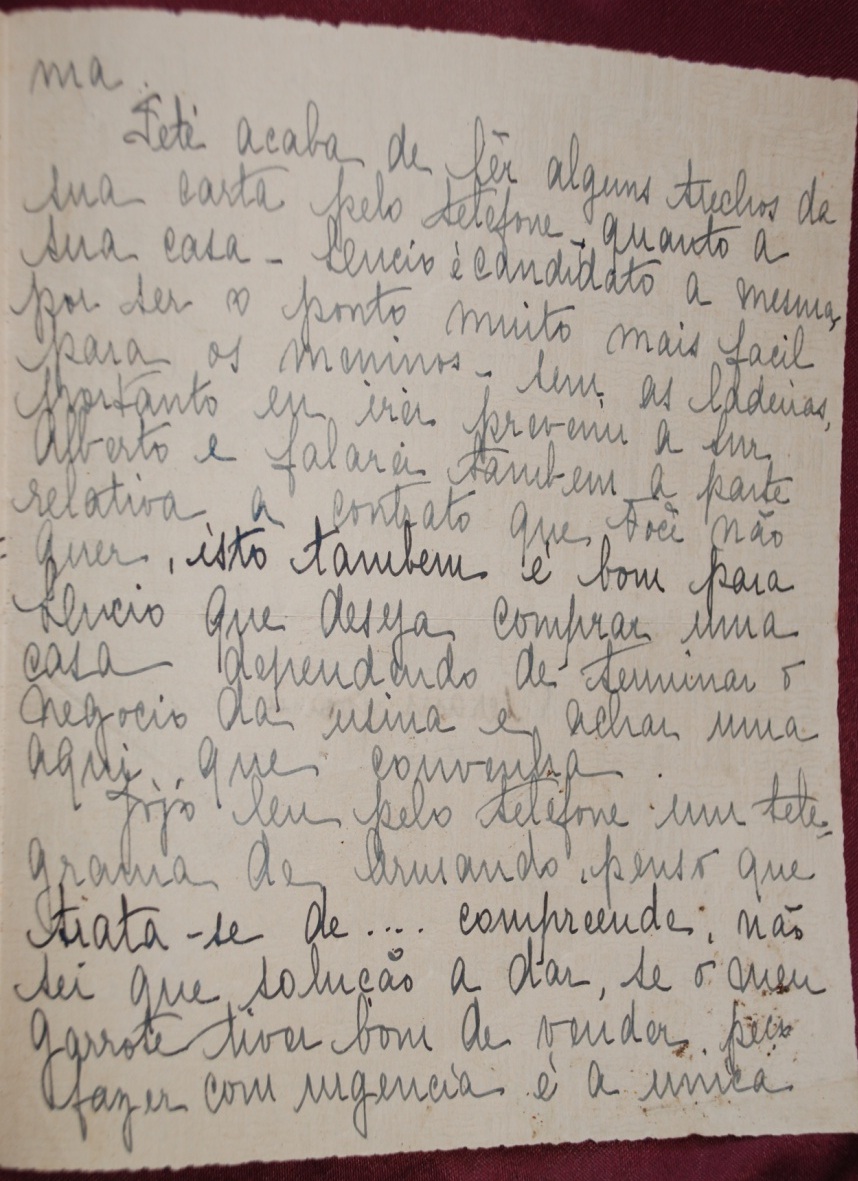 ma.
Teté acaba de lêr alguns trechos da
sua carta pelo telefone, quanto a
sua casa - Lencio é candidato a mesma,
por ser o ponto muito mais facil
para os meninos - sem as ladeiras,
portanto eu irei prevenir a snr.
Alberto e falarei tambem a parte
relativa a contrato que você não
quer, isto tambem é bom para
Lencio que deseja comprar uma
casa dependendo de terminar o
negocio da usina e achar uma
aqui que convenha.
Jójó leu pelo telefone um tele-
grama de Armando, penso que
trata-se de .... compreende, não
sei que solução a dar, se o meu
garrote tiver bom de vender peço
fazer com urgencia é a unica